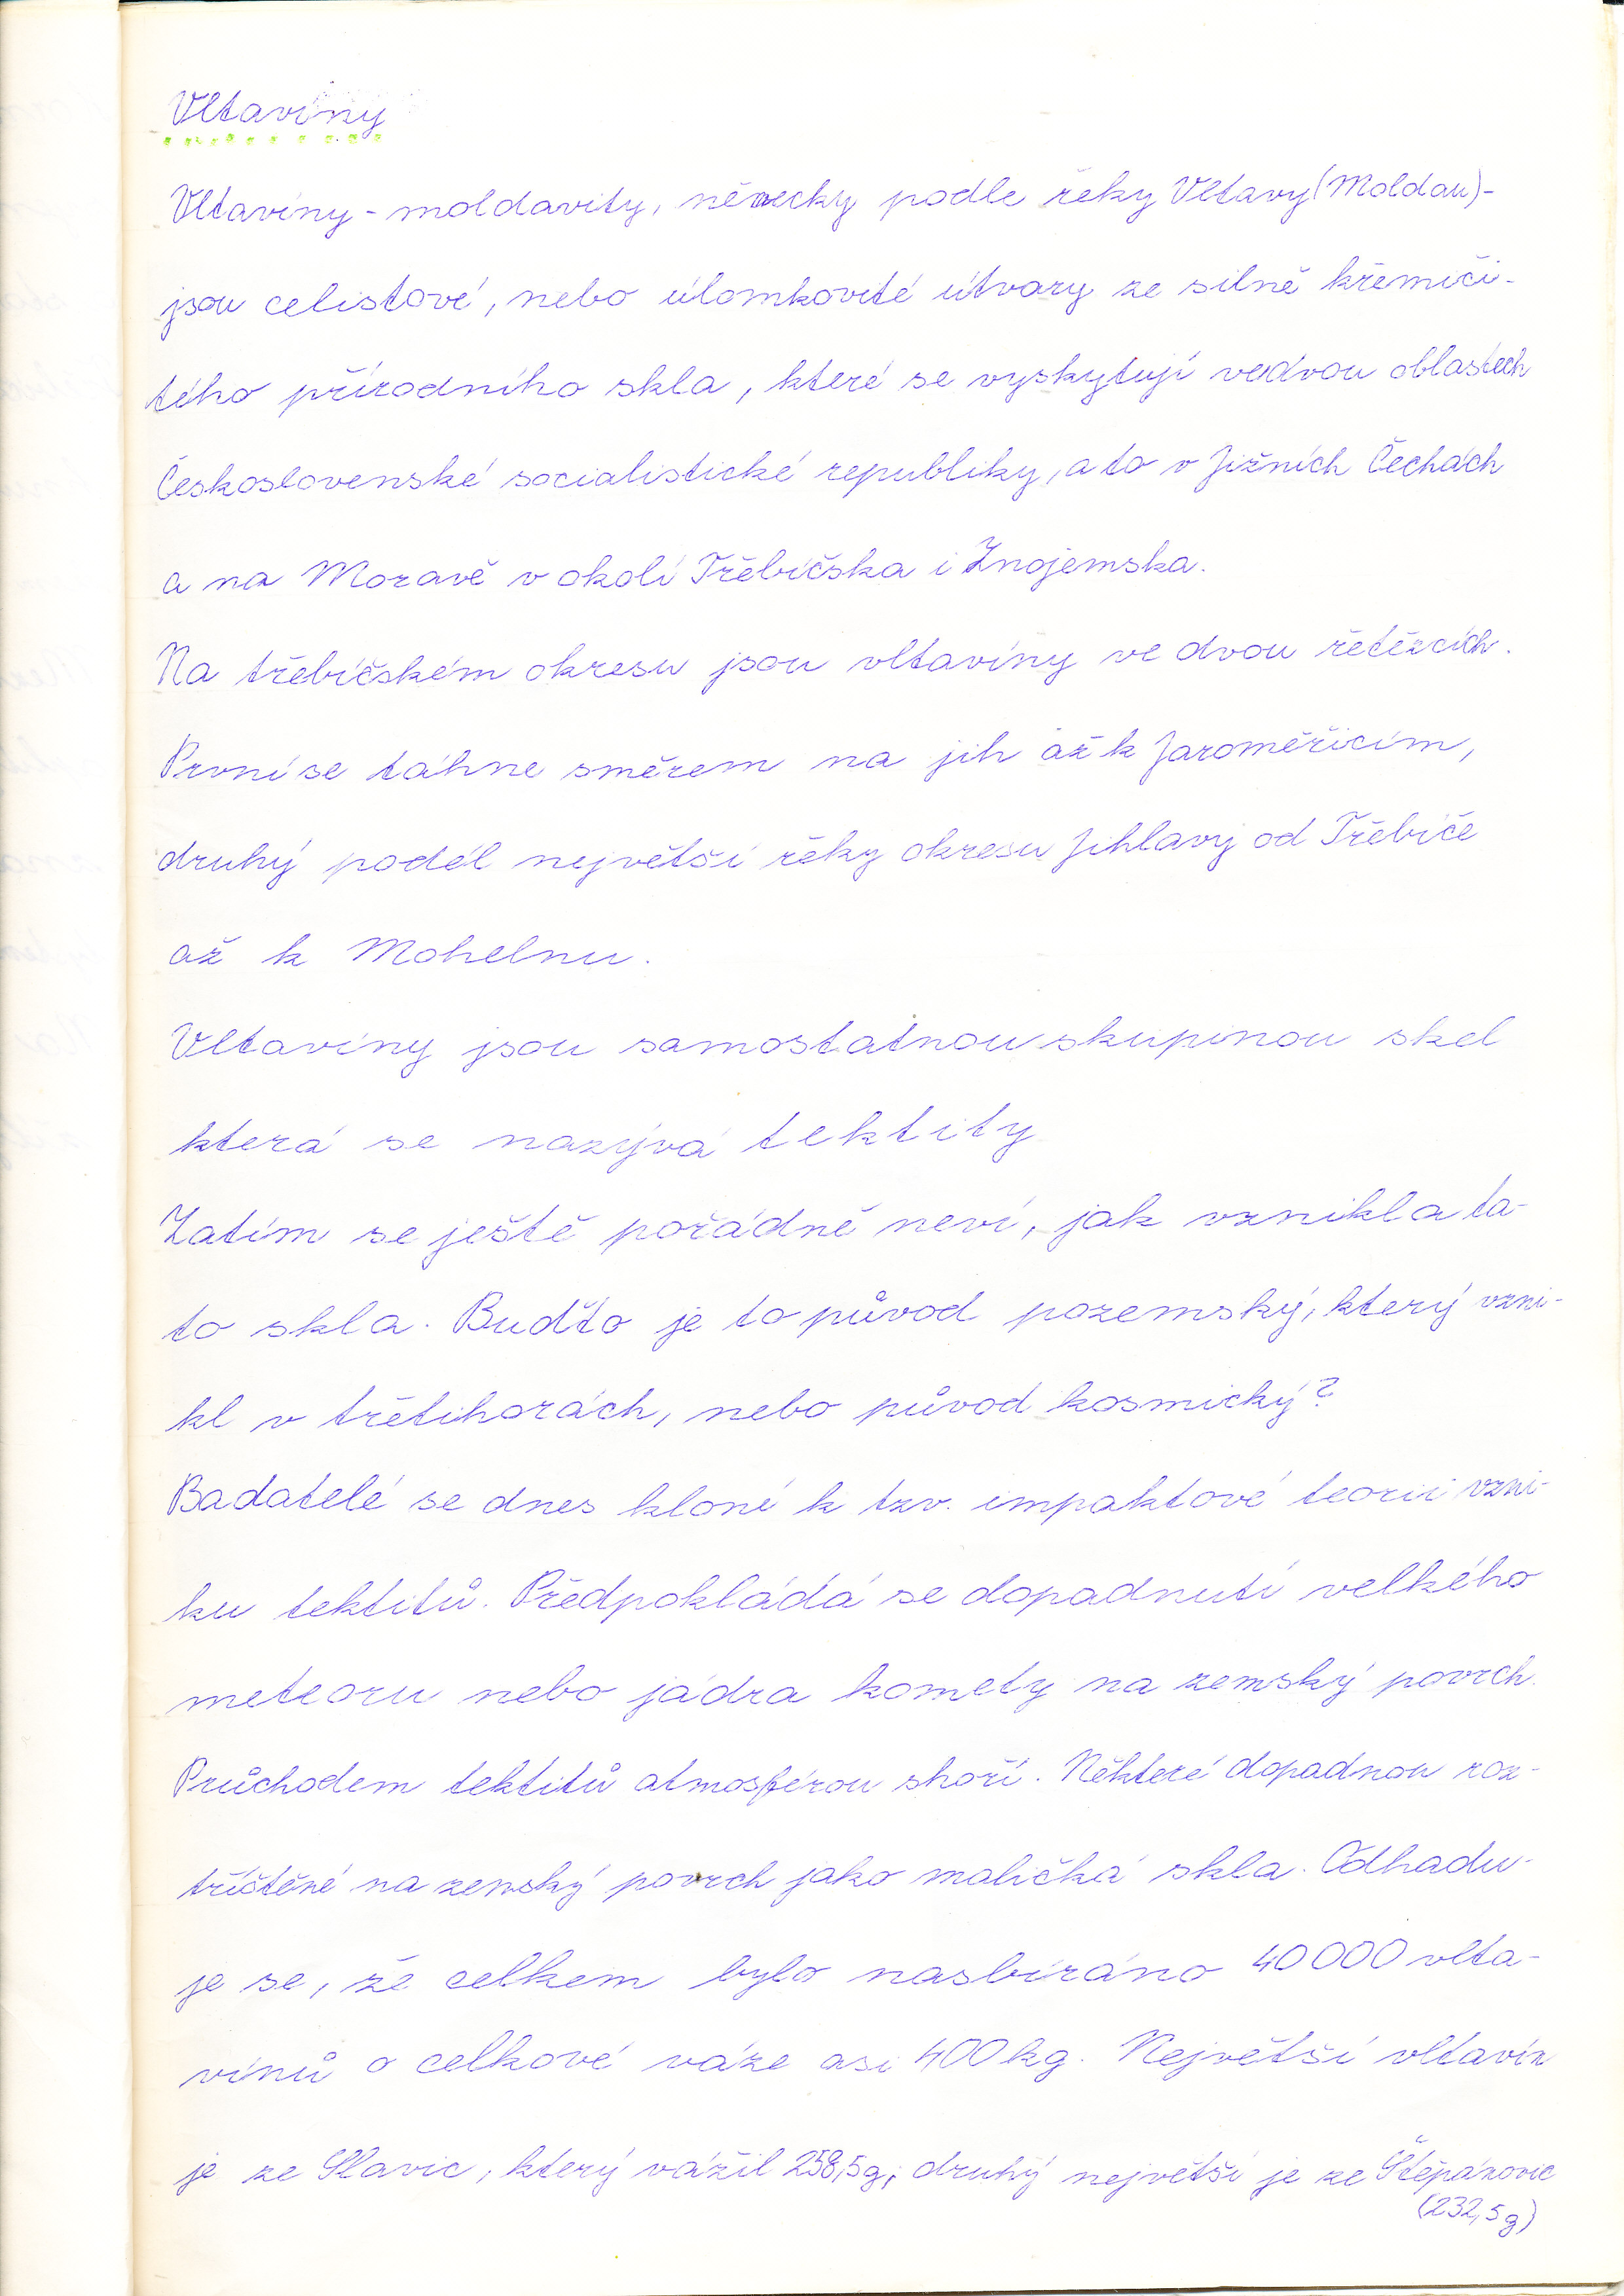 Vltavíny
Vltavíny - moldavity, německy podle řeky Vltavy (Moldau) -
jsou celistové, nebo úlomkovité útvary ze silně křemiči-
tého přírodního skla, které se vyskytují ve dvou oblastech
Československé socialistické republiky, a to v Jižních Čechách
a na Moravě v okolí Třebíčska i Znojemska.
Na třebíčském okresu jsou vltavíny ve dvou řetězcích.
První se táhne směrem na jih až k Jaroměřicím,
druhý podél největší řěky okresu Jihlavy od Třebíče
až k Mohelnu.
Vltavíny jsou samostatnou skupinou skel
která se nazývá tektity
Zatím se ještě pořádně neví, jak vznikla ta-
to skla. Buďto je to původ pozemský, který vzni-
kl v třetihorách, nebo původ kosmický?
Badatelé se dnes kloní k tzv. impaktové teorii vzni-
ku tektitů. Předpokládá se dopadnutí velkého
meteoru nebo jádra komety na zemský povrch.
Průchodem tektitů atmosférou shoří. Některé dopadnou roz-
tříštěné na zemský povrch jako maličká skla. Odhadu-
je se, že celkem bylo nasbíráno 40 000 vlta-
vínů o celkové váze asi 400 kg. Největší vltavín
je ze Slavic, který vážil 258,5g, druhý největší je ze Štěpánovic
(232,5 g)